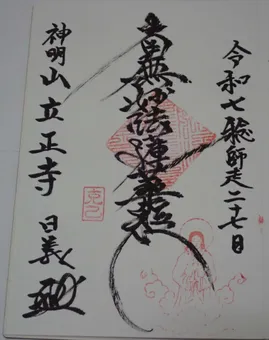 令和七年師走二十七日
南無妙法蓮華経
神明山立正寺 日義